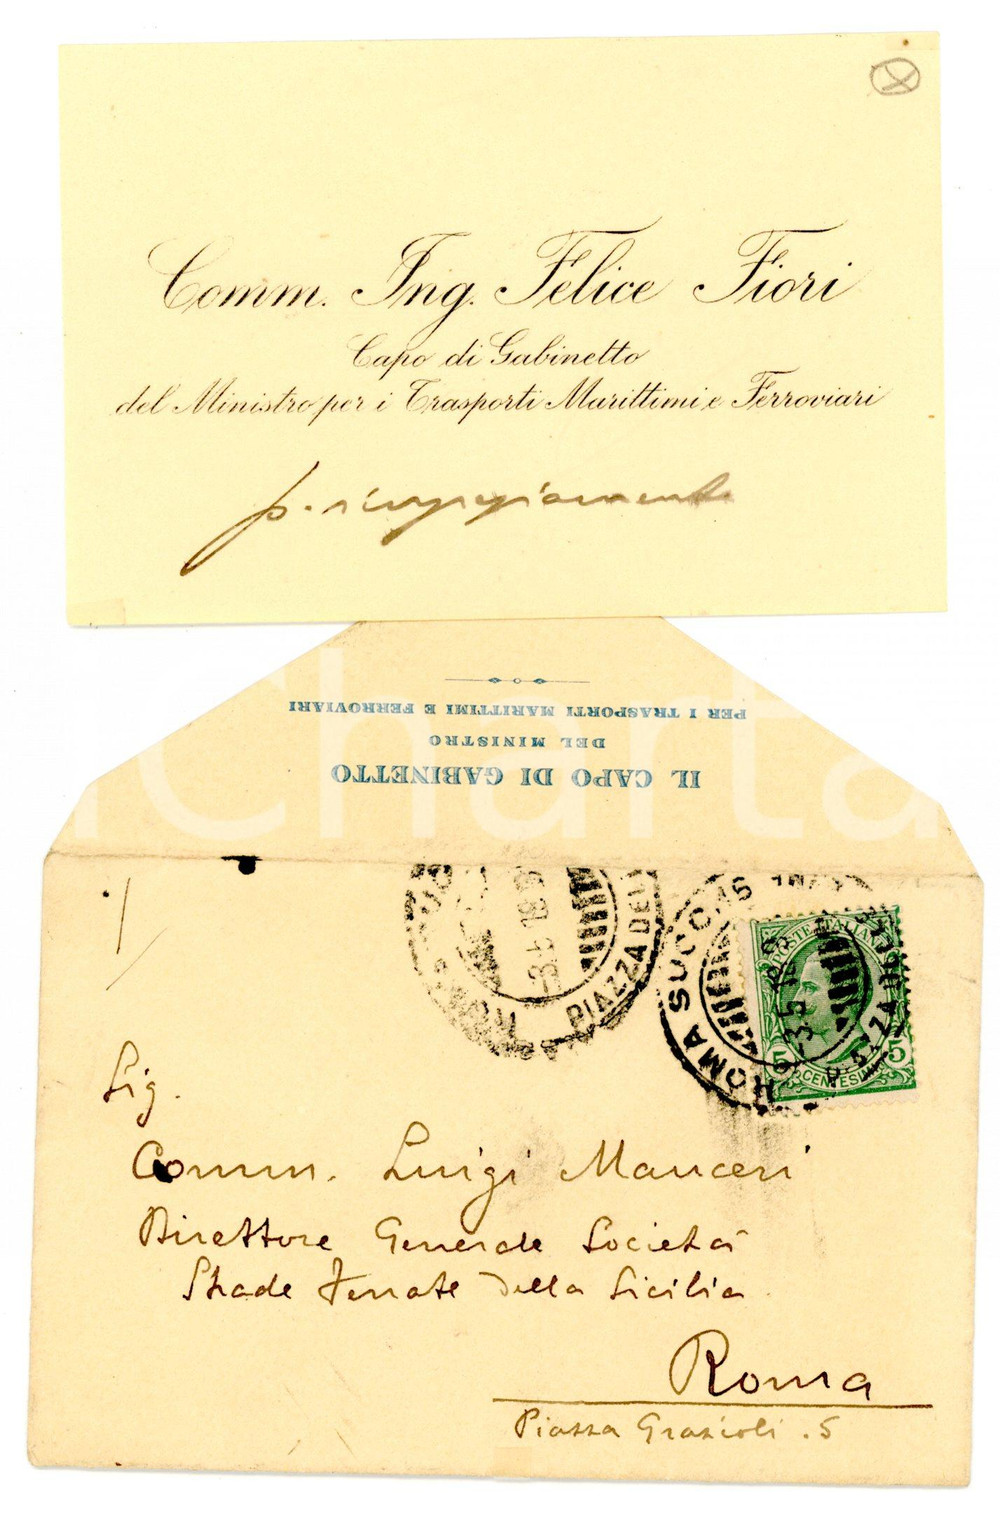 Comm. Ing. Felice Fiori
Capo di Gabinetto
del Ministro per i Trasporti Marittimi e Ferroviari
p. ringraziamento
IL CAPO DI GABINETTO
DEL MINISTRO
PER I TRASPORTI MARITTIMI E FERROVIARI
Charta
PIAZZA DEL
ROMA SUCC. 15
-3.5.18.
POSTE ITALIANE
5 CENTESIMI 5
Sig.
Comm. Luigi Mauceri
Direttore Generale Società
Strade Ferrate della Sicilia
Roma
Piazza Grazioli . 5